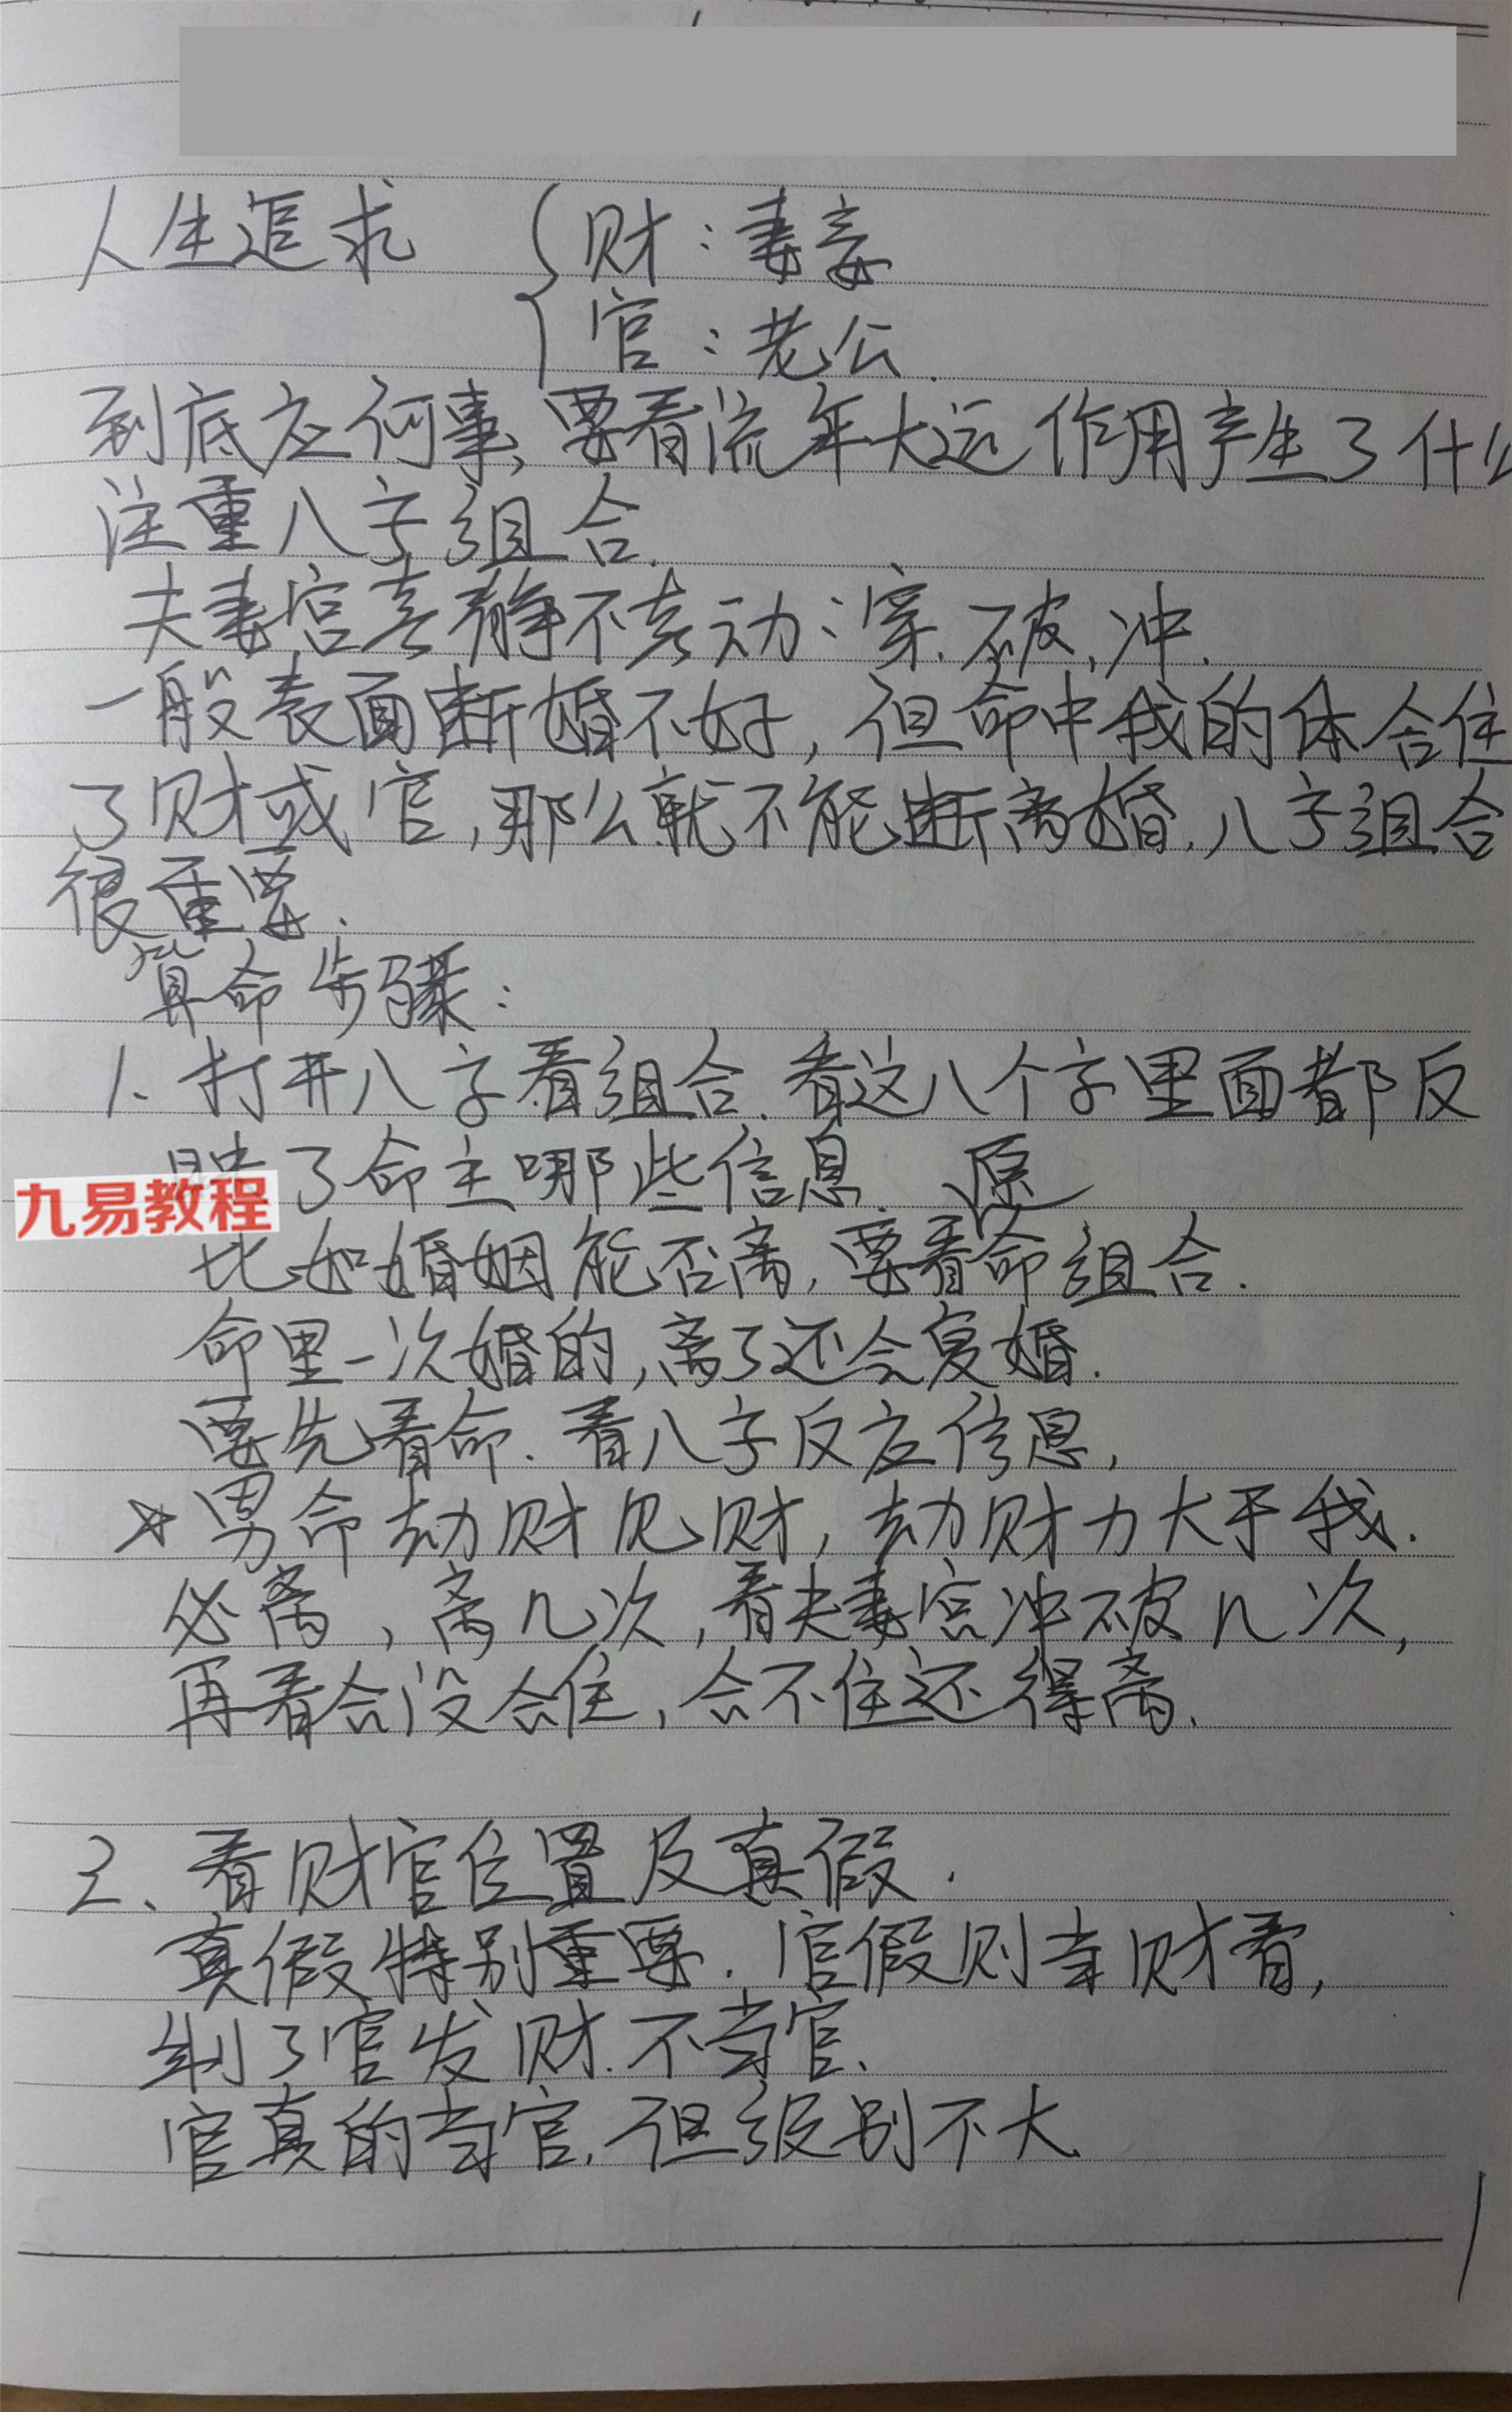 人生追求 {财：妻妾
官：老公.
到底应何事，要看流年大运作用产生了什么
注重八字组合.
夫妻宫喜静不喜动：穿.破.冲.
一般表面断婚不好，但命中我的体合住
了财或官，那么就不能断离婚.八字组合
很重要.
算命步骤：
1、打开八字看组合.看这八个字里面都反
了命主哪些信息. 原
九易教程
比如婚姻能否离，要看命组合.
命里一次婚的，离了还会复婚.
要先看命.看八字反应信息，
☆男命劫财见财，劫财力大于我.
必离，离几次，看夫妻宫冲破几次，
再看合没合住，合不住还得离.
2、看财官位置及真假.
真假特别重要.官假则当财看，
制了官发财.不当官.
官真的当官.但级别不大
1